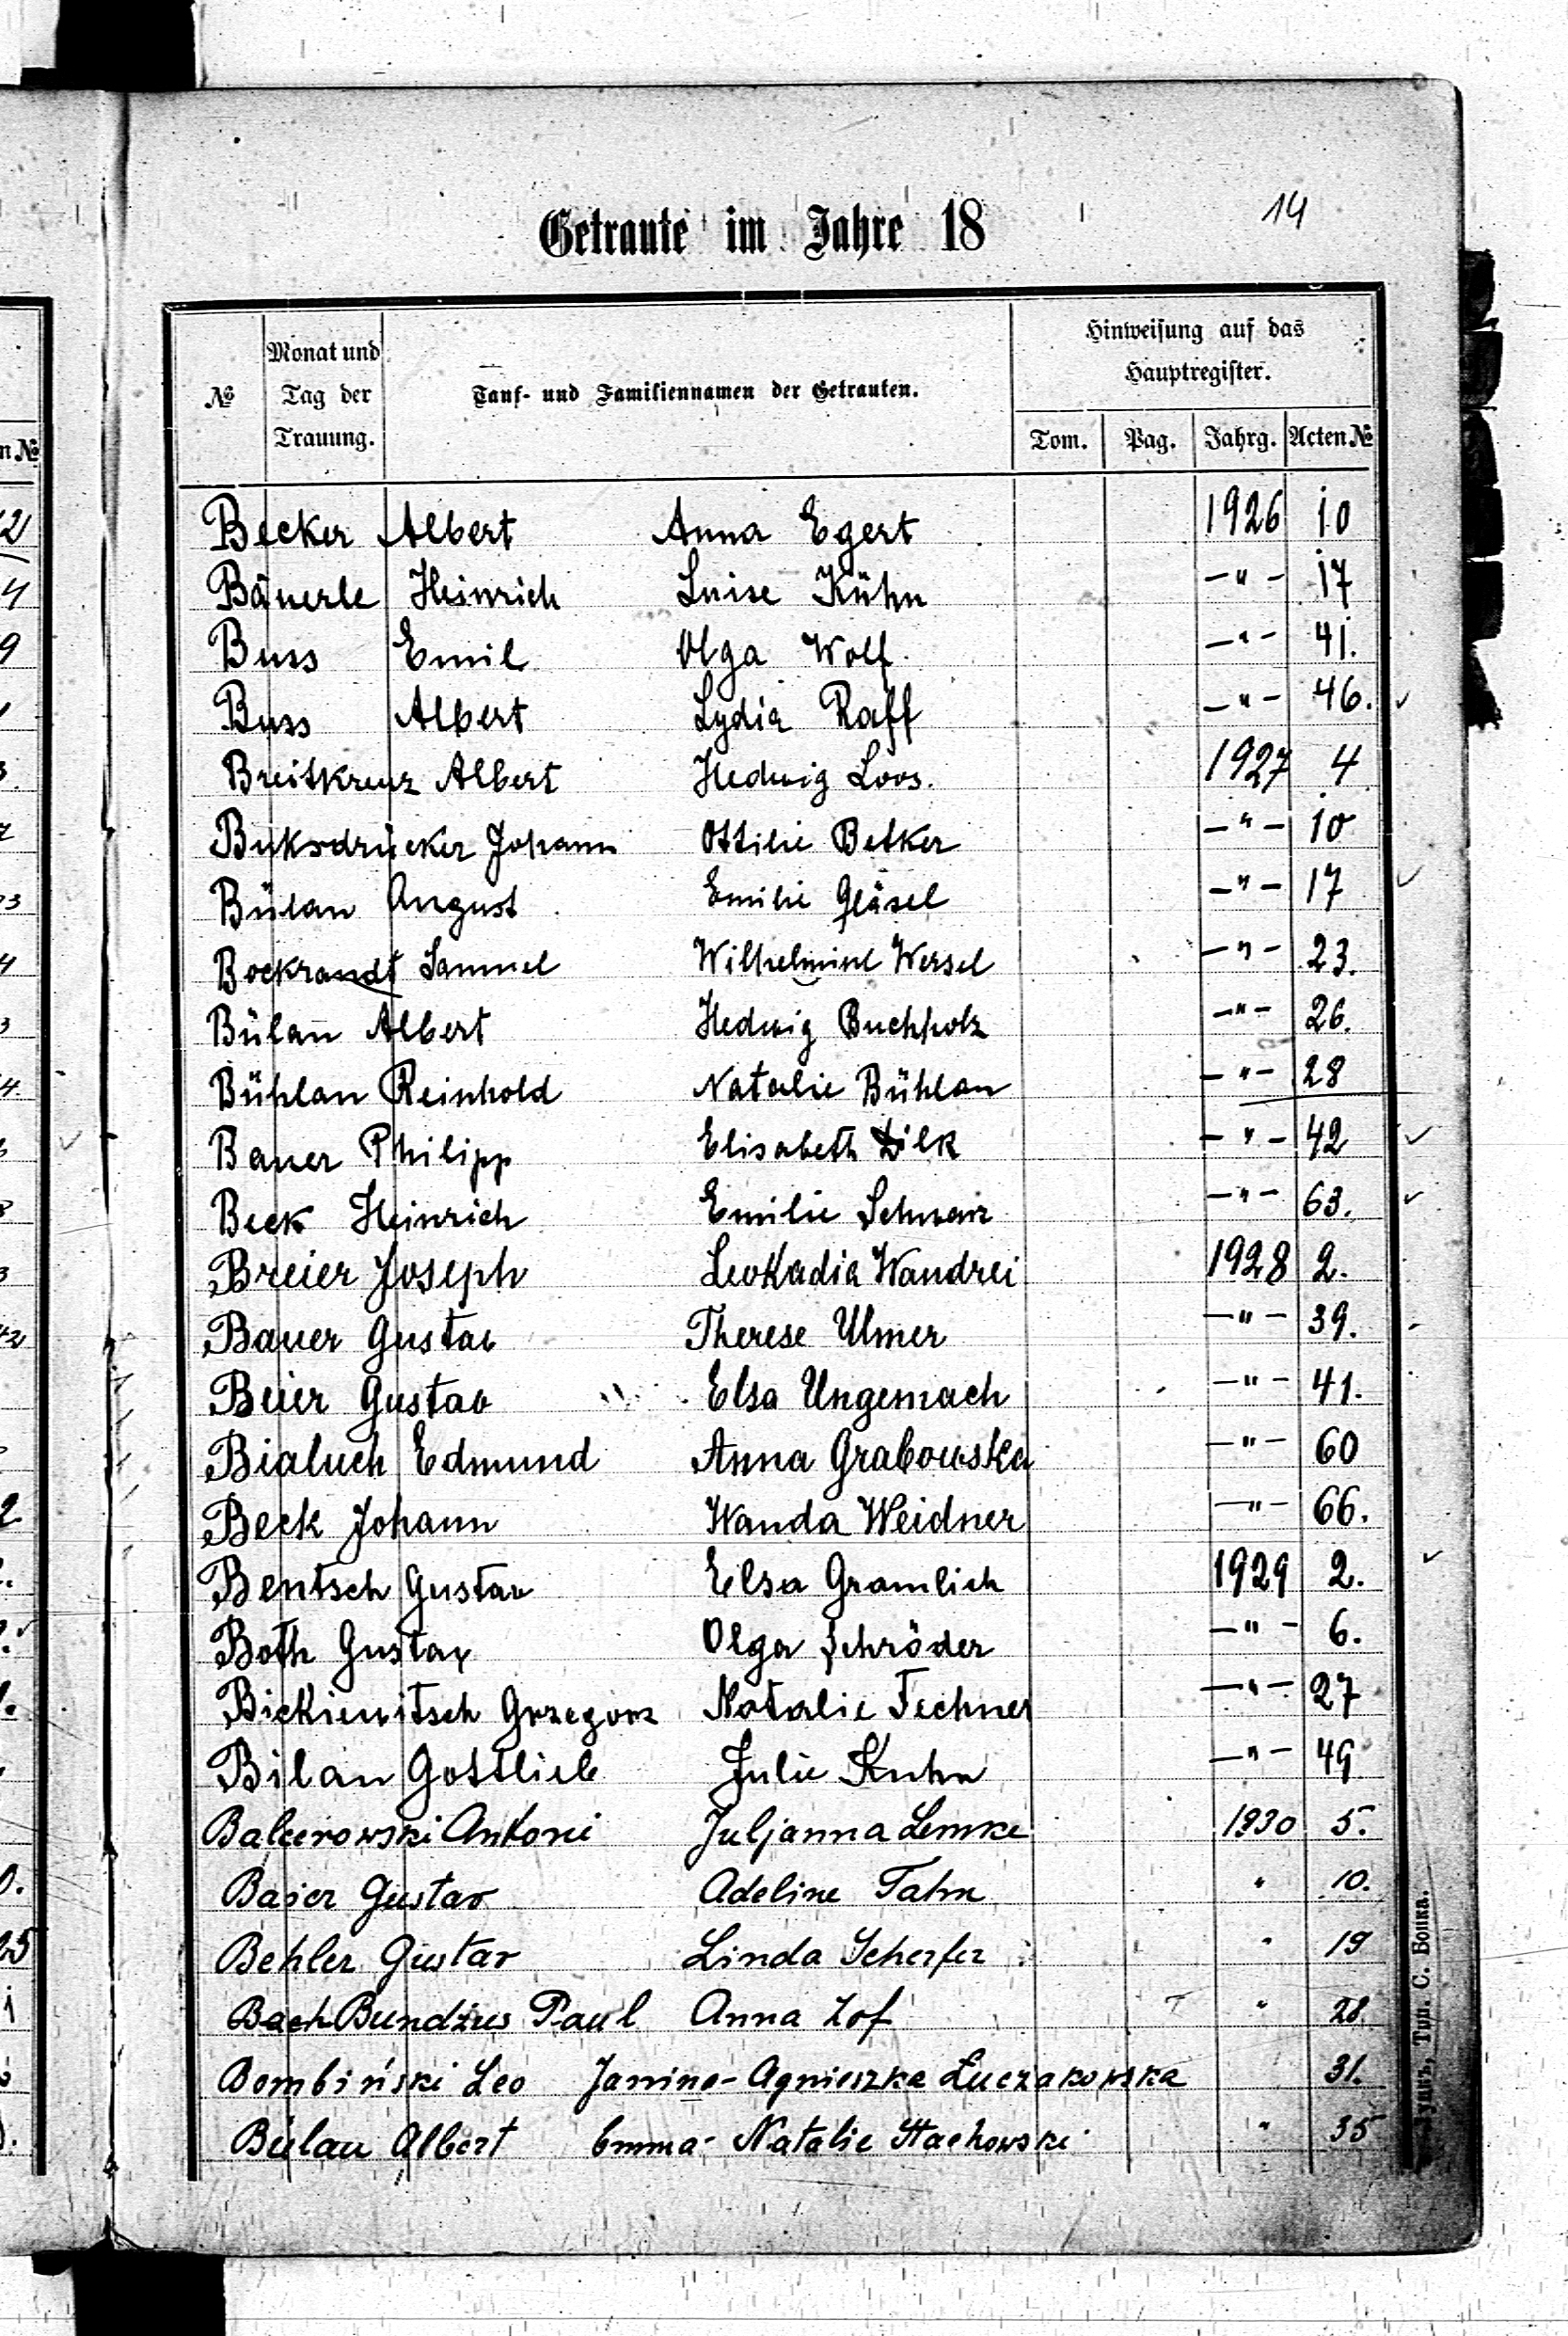 14
Getraute im Jahre 18
№ Monat und Tag der Trauung. Tauf- und Familiennamen der Getrauten. Hinweisung auf das Hauptregister.
Tom. Pag. Jahrg. Acten №
Becker Albert Anna Egert 1926 10
Bäuerle Heinrich Luise Kühn —"— 17
Buss Emil Olga Wolf. —"— 41.
Buss Albert Lydia Raff —"— 46.
Breitkreuz Albert Hedwig Loos. 1927 4
Buksdrücker Johann Ottilie Betker —"— 10
Bülau August Emilie Gläsel —"— 17
Bockrandt Samuel Wilhelmine Wersel —"— 23.
Bülau Albert Hedwig Buchholz —"— 26.
Bühlau Reinhold Natalie Bühlau —"— 28
Bauer Philipp Elisabeth Dilk —"— 42
Beck Heinrich Emilie Schwarz —"— 63.
Breier Joseph Leokadia Wandrei 1928 2.
Bauer Gustav Therese Ulmer —"— 39.
Beier Gustav Elsa Ungemach —"— 41.
Bialuch Edmund Anna Grabowska —"— 60
Beck Johann Wanda Weidner —"— 66.
Bentsch Gustav Elsa Gramlich 1929 2.
Both Gustav Olga Schröder —"— 6.
Bickiewitsch Grzegorz Natalie Fechner —"— 27
Bilau Gottlieb Julie Kuhn —"— 49
Balcerowski Antoni Juljanna Lemke 1930 5.
Baier Gustav Adeline Tahn " 10.
Behler Gustav Linda Scherfer " 19
Bach Bundzus Paul Anna Zof " 28.
Bombiński Leo Janina-Agnieszka Łuczakowska 31.
Bülau Albert Emma-Natalie Stachowski " 35